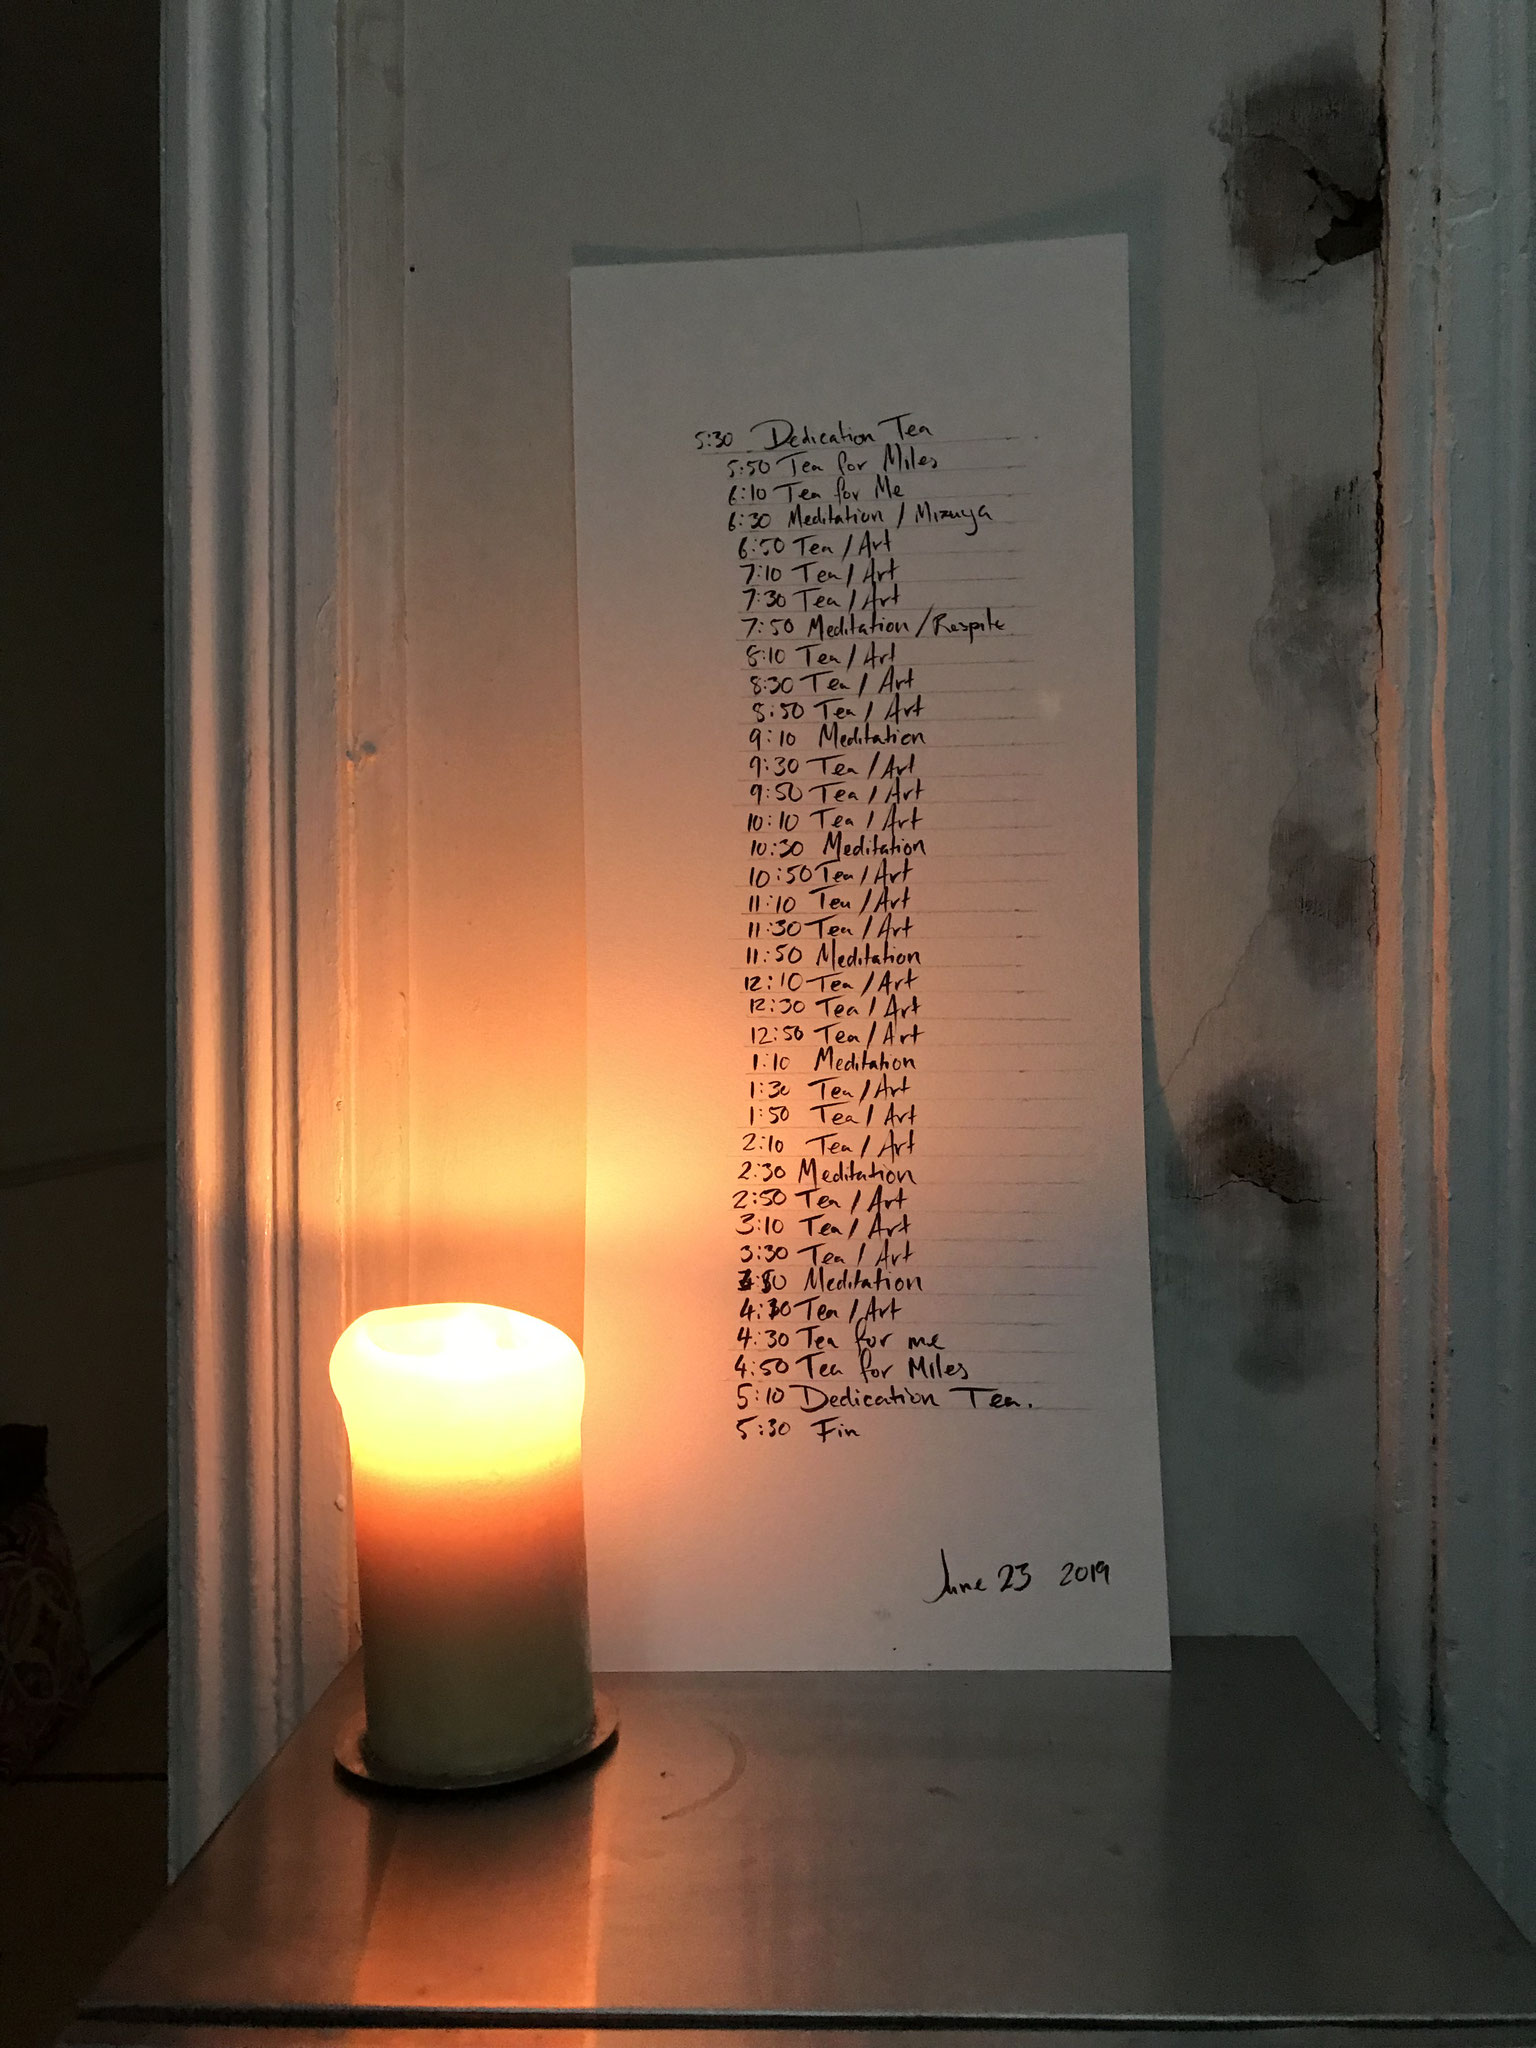 5:30 Dedication Tea
5:50 Tea for Miles
6:10 Tea for Me
6:30 Meditation / Mizuya
6:50 Tea / Art
7:10 Tea / Art
7:30 Tea / Art
7:50 Meditation / Respite
8:10 Tea / Art
8:30 Tea / Art
8:50 Tea / Art
9:10 Meditation
9:30 Tea / Art
9:50 Tea / Art
10:10 Tea / Art
10:30 Meditation
10:50 Tea / Art
11:10 Tea / Art
11:30 Tea / Art
11:50 Meditation
12:10 Tea / Art
12:30 Tea / Art
12:50 Tea / Art
1:10 Meditation
1:30 Tea / Art
1:50 Tea / Art
2:10 Tea / Art
2:30 Meditation
2:50 Tea / Art
3:10 Tea / Art
3:30 Tea / Art
3:50 Meditation
4:10 Tea / Art
4:30 Tea for me
4:50 Tea for Miles
5:10 Dedication Tea.
5:30 Fin
June 23 2019